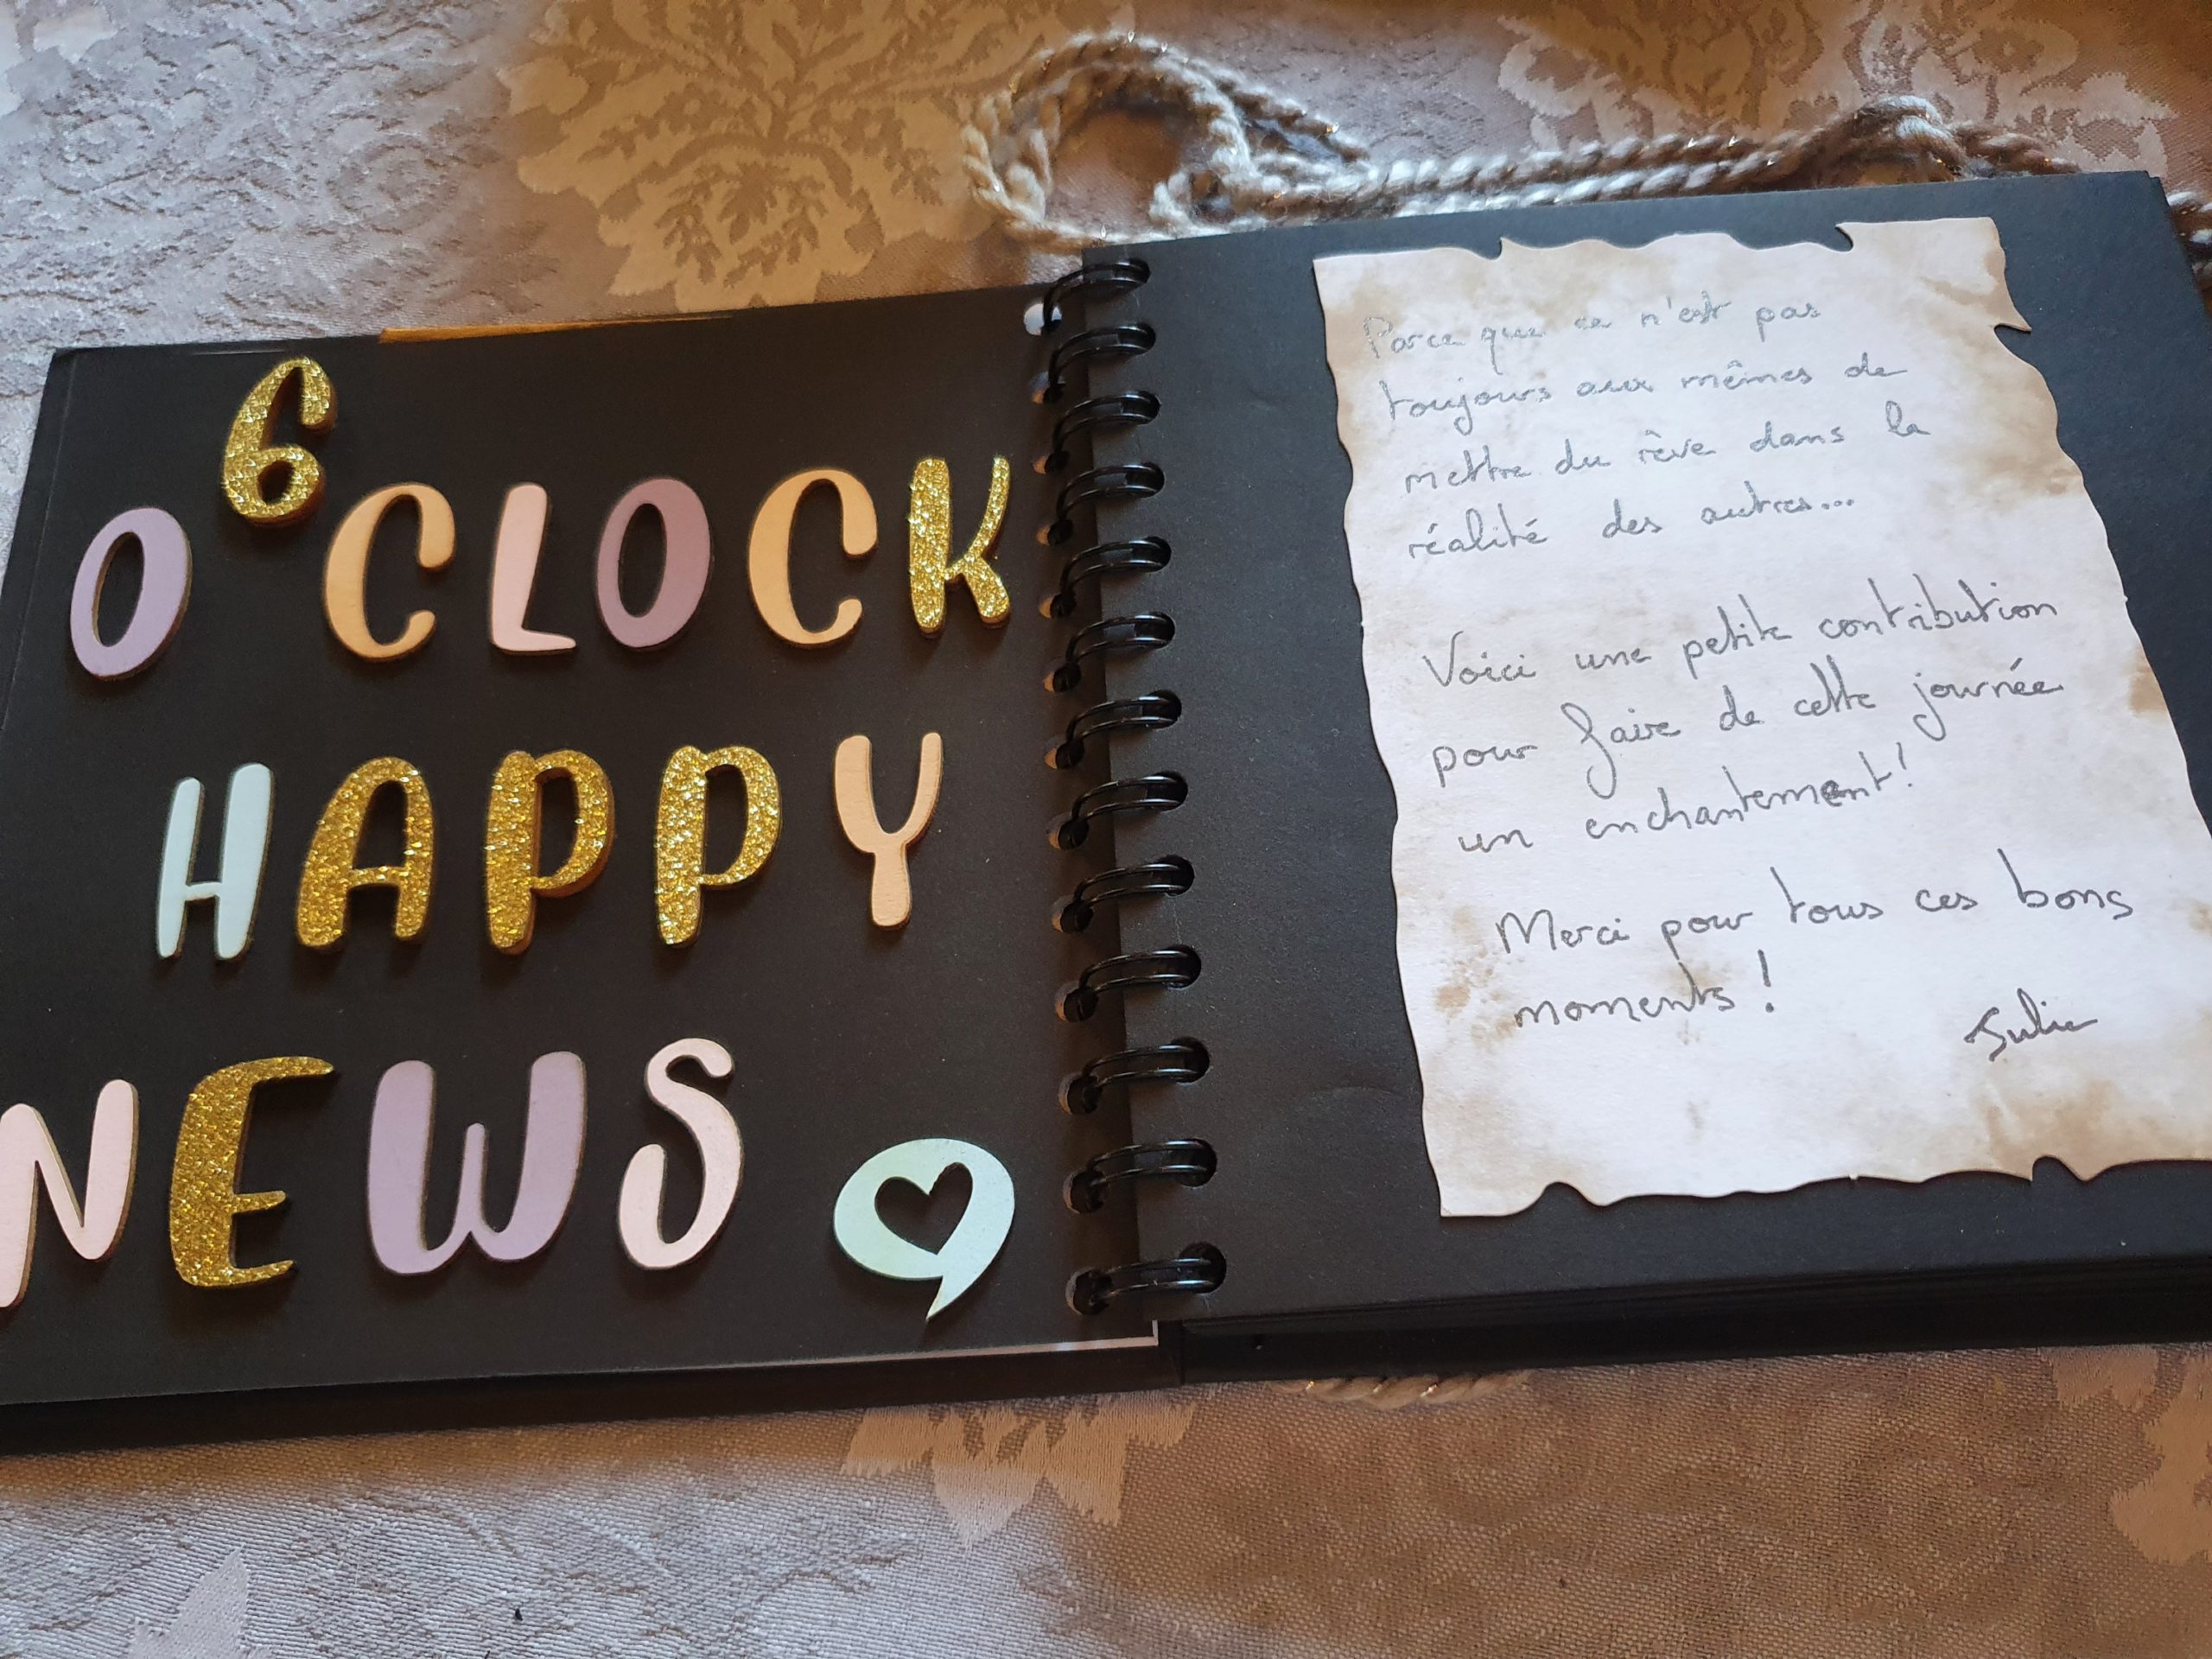 6
O CLOCK
HAPPY
NEWS
Parce que ce n'est pas
toujours aux mêmes de
mettre du rêve dans la
réalité des autres...
Voici une petite contribution
pour faire de cette journée
un enchantement!
Merci pour tous ces bons
moments!
Julie